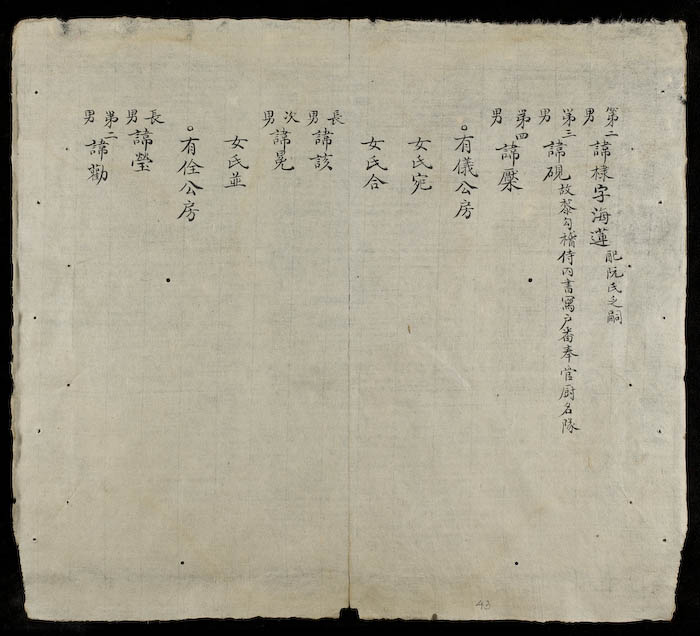 第二男諱棣字海蓮配阮氏乏嗣
第三男諱硯故黎勾稽侍內書寫户番奉官厨名隊
第四男諱檿
○有儀公房
女氏宛
女氏合
長男諱該
次男諱晃
女氏並
○有佺公房
長男諱瑩
第二男諱勸
43